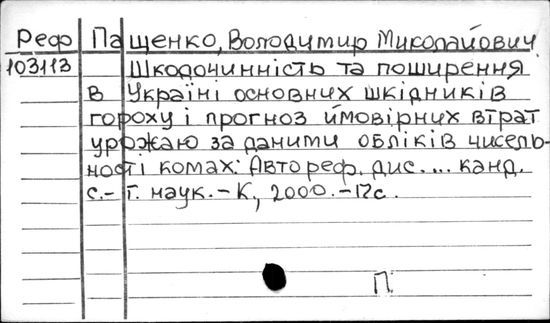 Реф Пащенко, Володимир Миколайович
103113 Шкодочинність та поширення
в Україні основних шкідників
гороху і прогноз ймовірних втрат
урожаю за даними обліків чисель-
ності комах: Автореф. дис.... канд.
с.-г. наук. - К., 2000. - 17с.
П.